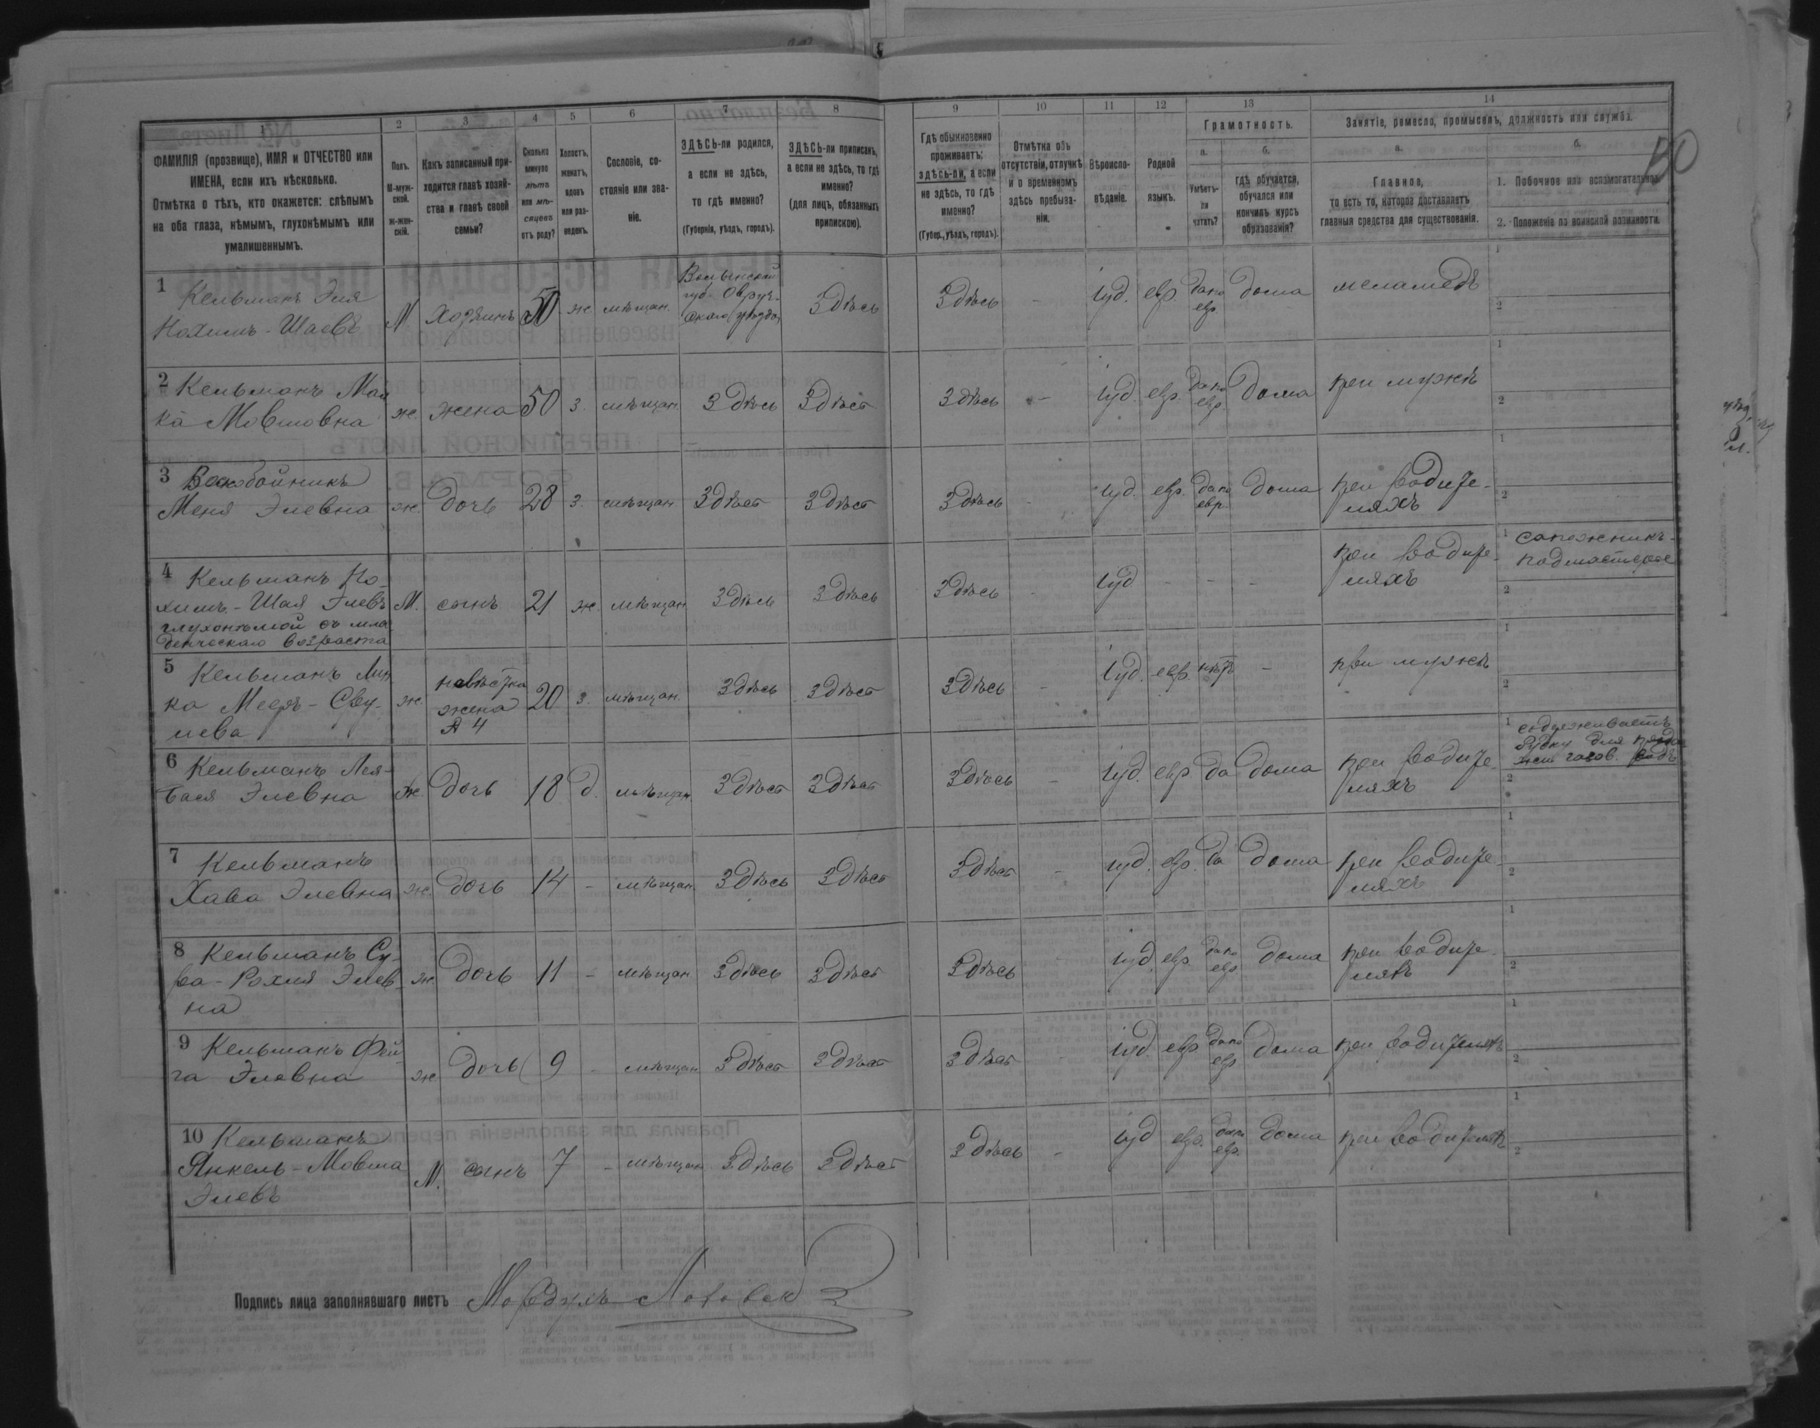 1 2 3 4 5 6 7 8 9 10 11 12 13 14
ФАМИЛІЯ (прозвище), ИМЯ и ОТЧЕСТВО или ИМЕНА, если ихъ нѣсколько.
Отмѣтка о тѣхъ, кто окажется: слѣпымъ на оба глаза, нѣмымъ, глухонѣмымъ или умалишеннымъ.
Полъ. М-мужской. Ж-женскій.
Какъ записанный приходится главѣ хозяйства и главѣ своей семьи?
Сколько минуло лѣтъ или мѣсяцевъ отъ роду?
Холостъ, женатъ, вдовъ или разведенъ.
Сословіе, состояніе или званіе.
ЗДѢСЬ-ли родился, а если не здѣсь, то гдѣ именно? (Губернія, уѣздъ, городъ).
ЗДѢСЬ-ли приписанъ, а если не здѣсь, то гдѣ именно? (для лицъ, обязанныхъ припискою).
Гдѣ обыкновенно проживаетъ: здѣсь-ли, а если не здѣсь, то гдѣ именно? (Губер., уѣздъ, городъ).
Отмѣтка объ отсутствіи, отлучкѣ и о временномъ здѣсь пребываніи.
Вѣроисповѣданіе.
Родной языкъ.
Грамотность.
а. Умѣетъ-ли читать?
б. гдѣ обучается, обучался или кончилъ курсъ образованія?
Занятіе, ремесло, промыселъ, должность или служба.
а. Главное, то есть то, которое доставляетъ главныя средства для существованія.
б. 1. Побочное или вспомогательное.
2. Положеніе по воинской повинности.
1 Кельманъ Эля Нохимъ-Шаевъ М хозяинъ 50 ж мѣщан. Волынской губ. Овручскаго уѣзда Здѣсь Здѣсь - Іуд. евр да по евр дома меламедъ
2 Кельманъ Малка Мовшовна ж жена 50 з. мѣщан Здѣсь Здѣсь Здѣсь - Іуд. евр. да по евр дома при мужѣ
3 Меня Элевна ж дочь 28 з. мѣщан Здѣсь Здѣсь Здѣсь - Іуд. евр. да по евр дома при родителяхъ
4 Кельманъ Нохимъ-Шая Элевъ глухонѣмой съ младенческаго возраста М. сынъ 21 ж. мѣщан Здѣсь Здѣсь Здѣсь - Іуд - - - при родителяхъ сапожникъ-подмастерье
5 Кельманъ ж невѣстка жена № 4 20 з. мѣщан. Здѣсь Здѣсь Здѣсь - Іуд. евр. нѣтъ - при мужѣ
6 Кельманъ Лея-Бася Элевна ж дочь 18 д. мѣщан Здѣсь Здѣсь Здѣсь - Іуд. евр да дома при родителяхъ
7 Кельманъ Хава Элевна ж дочь 14 - мѣщан Здѣсь Здѣсь Здѣсь - Іуд. евр. да дома при родителяхъ
8 Кельманъ Сура-Рохля Элевна ж дочь 11 - мѣщан Здѣсь Здѣсь Здѣсь Іуд. евр да по евр дома при родителяхъ
9 Кельманъ Фейга Элевна ж дочь 9 - мѣщан Здѣсь Здѣсь Здѣсь - Іуд евр да по евр дома при родителяхъ
10 Кельманъ Янкель-Мовша Элевъ М. сынъ 7 - мѣщан Здѣсь Здѣсь Здѣсь - Іуд евр. да по евр дома при родителяхъ
Подпись лица заполнявшаго листъ